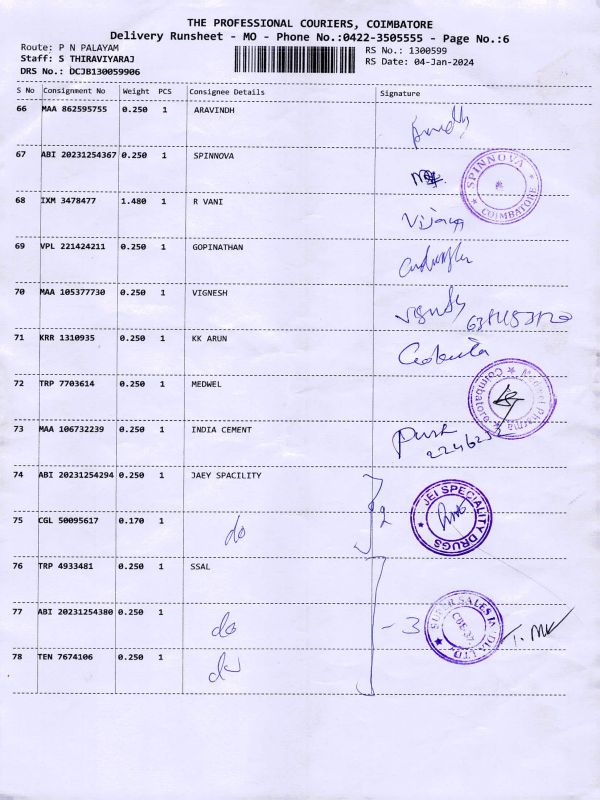 THE PROFESSIONAL COURIERS, COIMBATORE
Delivery Runsheet - MO - Phone No.:0422-3505555 - Page No.:6
Route: P N PALAYAM
RS No.: 1300599
Staff: S THIRAVIYARAJ
RS Date: 04-Jan-2024
DRS No.: DCJB130059906
S No Consignment No Weight PCS Consignee Details Signature
66 MAA 862595755 0.250 1 ARAVINDH
67 ABI 20231254367 0.250 1 SPINNOVA
SPINNOVA COIMBATORE
68 IXM 3478477 1.480 1 R VANI
69 VPL 221424211 0.250 1 GOPINATHAN
70 MAA 105377730 0.250 1 VIGNESH
71 KRR 1310935 0.250 1 KK ARUN
72 TRP 7703614 0.250 1 MEDWEL
73 MAA 106732239 0.250 1 INDIA CEMENT
74 ABI 20231254294 0.250 1 JAEY SPACILITY
2
JEI SPECIALITY DRUGS
75 CGL 50095617 0.170 1 do
76 TRP 4933481 0.250 1 SSAL
77 ABI 20231254380 0.250 1 do
- 3
78 TEN 7674106 0.250 1 do